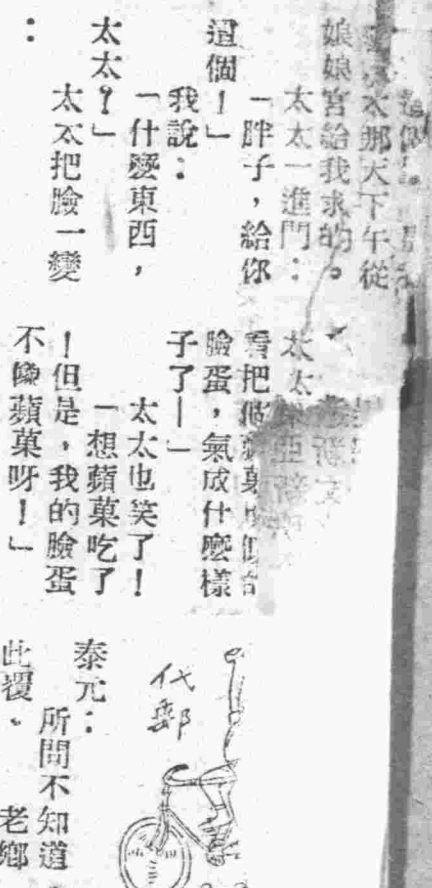 太那天下午從
娘娘宮給我求的。
太太一進門：
「胖子，給你
這個！」
我說：
「什麼東西，
太太？」
太太把臉一變
：
太太
看把
臉蛋，氣成什麼樣
子了—」
太太也笑了！
「想蘋菓吃了
！但是，我的臉蛋
不像蘋菓呀！」
代郵
泰元：
所問不知道
此覆。 老鄉